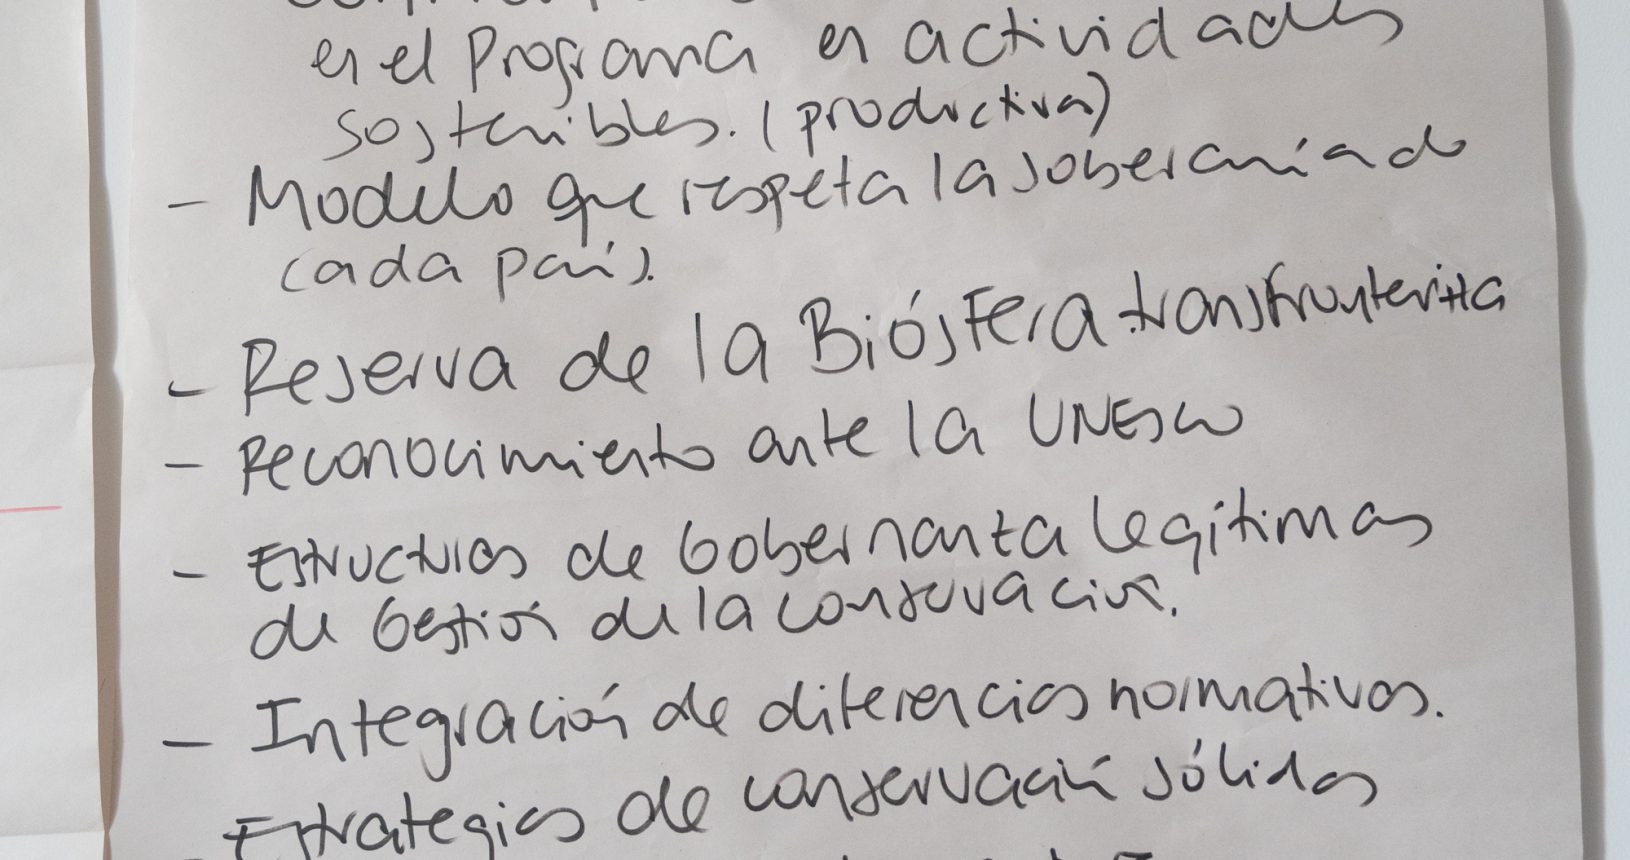 en el Programa en actividades
sostenibles. (productiva)
- Modelo que respeta la soberanía de
cada país.
- Reserva de la Biósfera transfronteriza
- Reconocimiento ante la UNESCO
- Estructuras de Gobernanza legítimas
de Gestión de la conservación.
- Integración de diferencias normativas.
- Estrategias de conservación sólidas